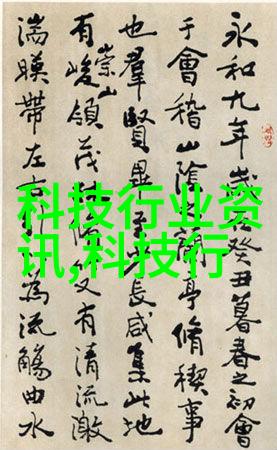 永和九年歲癸丑暮春之初會
于會稽山陰蘭亭脩稧事
也羣賢畢至少長咸集此地
有崇山峻領茂林又有清流激
湍暎帶左右為流觴曲水
科技行业资
讯,科技行